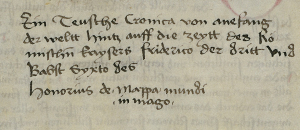 Ein Teusche Cronica von anefang
der weltt hintz auff die zeytt des Ro
mischn kaysers friderico der dritt vnd
Babst Syxto des
Honorius de Mappa mundi
in mago